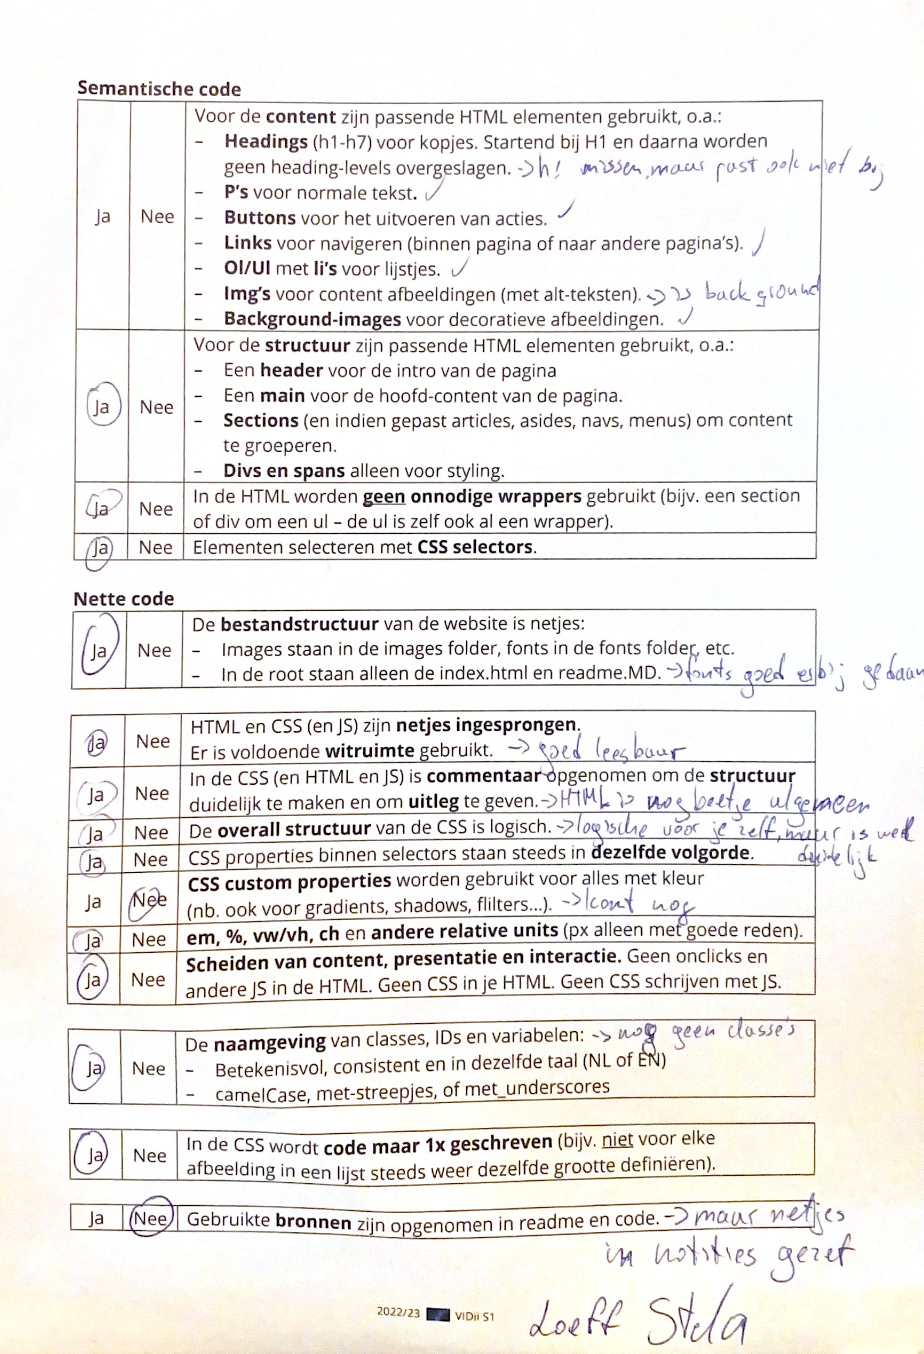 Semantische code
Voor de content zijn passende HTML elementen gebruikt, o.a.:
– Headings (h1-h7) voor kopjes. Startend bij H1 en daarna worden
geen heading-levels overgeslagen. -> h1 missen, maar past ook niet bij
– P's voor normale tekst. ✓
Ja Nee – Buttons voor het uitvoeren van acties. ✓
– Links voor navigeren (binnen pagina of naar andere pagina's). ✓
– Ol/Ul met li's voor lijstjes. ✓
– Img's voor content afbeeldingen (met alt-teksten). -> is background
– Background-images voor decoratieve afbeeldingen. ✓
Voor de structuur zijn passende HTML elementen gebruikt, o.a.:
– Een header voor de intro van de pagina
– Een main voor de hoofd-content van de pagina.
Ja Nee – Sections (en indien gepast articles, asides, navs, menus) om content
te groeperen.
– Divs en spans alleen voor styling.
Ja Nee In de HTML worden geen onnodige wrappers gebruikt (bijv. een section
of div om een ul – de ul is zelf ook al een wrapper).
Ja Nee Elementen selecteren met CSS selectors.
Nette code
De bestandstructuur van de website is netjes:
Ja Nee – Images staan in de images folder, fonts in de fonts folder, etc.
– In de root staan alleen de index.html en readme.MD. -> fonts goed erbij gedaan
Ja Nee HTML en CSS (en JS) zijn netjes ingesprongen.
Er is voldoende witruimte gebruikt. -> goed leesbaar
Ja Nee In de CSS (en HTML en JS) is commentaar opgenomen om de structuur
duidelijk te maken en om uitleg te geven. -> HTML is nog beetje algemeen
Ja Nee De overall structuur van de CSS is logisch. -> logische voor je zelf, maar is wel
duidelijk
Ja Nee CSS properties binnen selectors staan steeds in dezelfde volgorde.
Ja Nee CSS custom properties worden gebruikt voor alles met kleur
(nb. ook voor gradients, shadows, flilters...). -> komt nog
Ja Nee em, %, vw/vh, ch en andere relative units (px alleen met goede reden).
Ja Nee Scheiden van content, presentatie en interactie. Geen onclicks en
andere JS in de HTML. Geen CSS in je HTML. Geen CSS schrijven met JS.
De naamgeving van classes, IDs en variabelen: -> nog geen classe's
Ja Nee – Betekenisvol, consistent en in dezelfde taal (NL of EN)
– camelCase, met-streepjes, of met_underscores
Ja Nee In de CSS wordt code maar 1x geschreven (bijv. niet voor elke
afbeelding in een lijst steeds weer dezelfde grootte definiëren).
Ja Nee Gebruikte bronnen zijn opgenomen in readme en code. -> maar netjes
in notities gezet
2022/23 VIDii S1
Loeff Stela